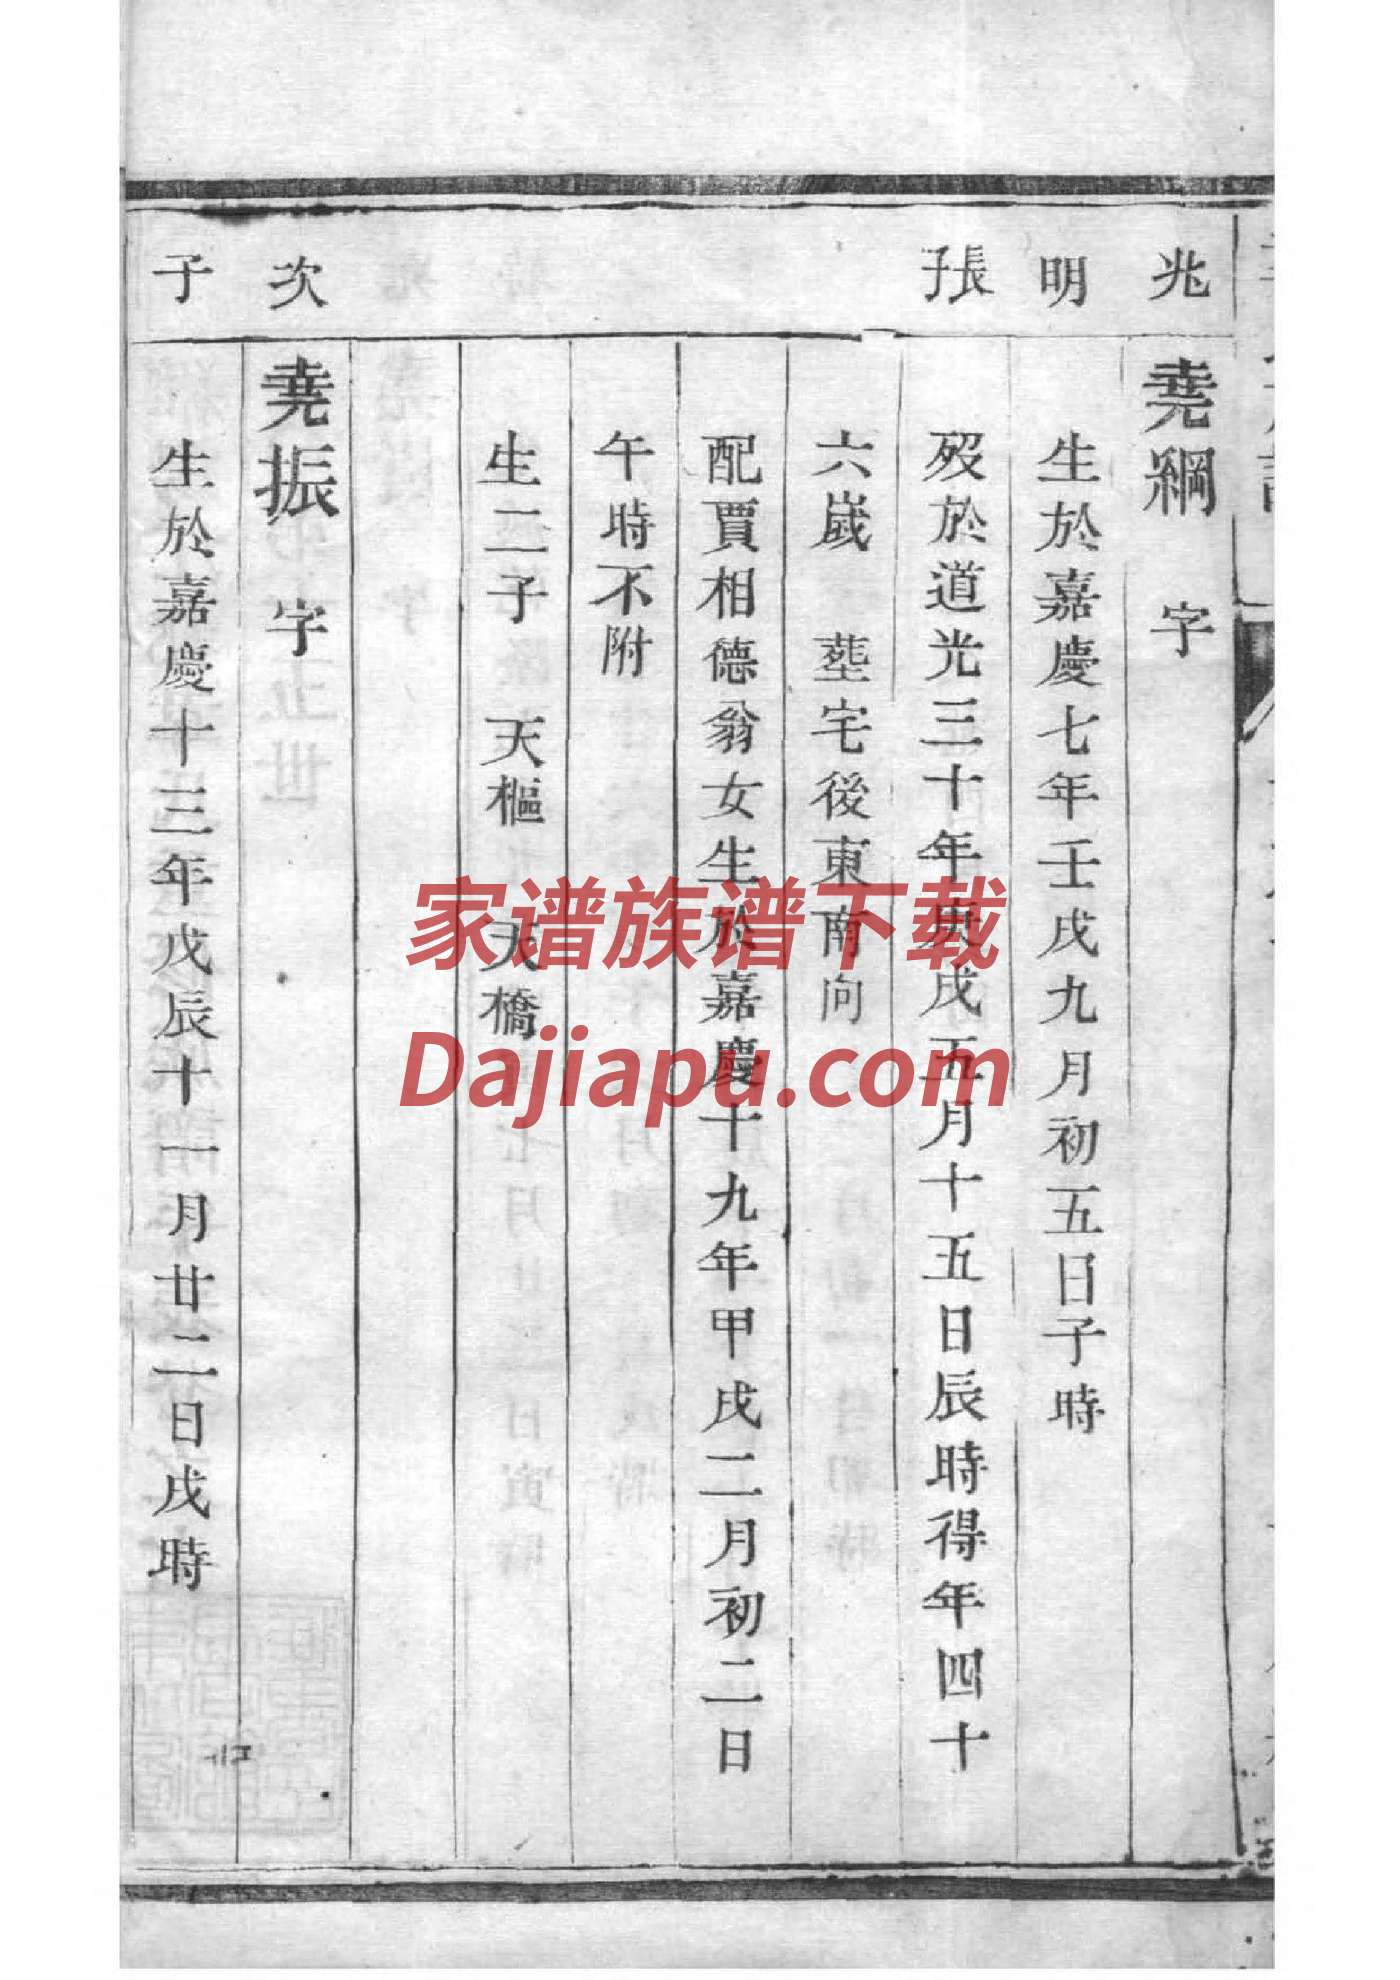 兆
明
長子
次
子
堯綱 字
生於嘉慶七年壬戌九月初五日子時
歿於道光三十年庚戌五月十五日辰時得年四十
六歲 塟宅後東南向
配賈相德翁女生於嘉慶十九年甲戌二月初二日
午時不附
生二子 天樞 天橋
堯振 字
生於嘉慶十三年戊辰十一月廿二日戌時
家谱族谱下载
Dajiapu.com